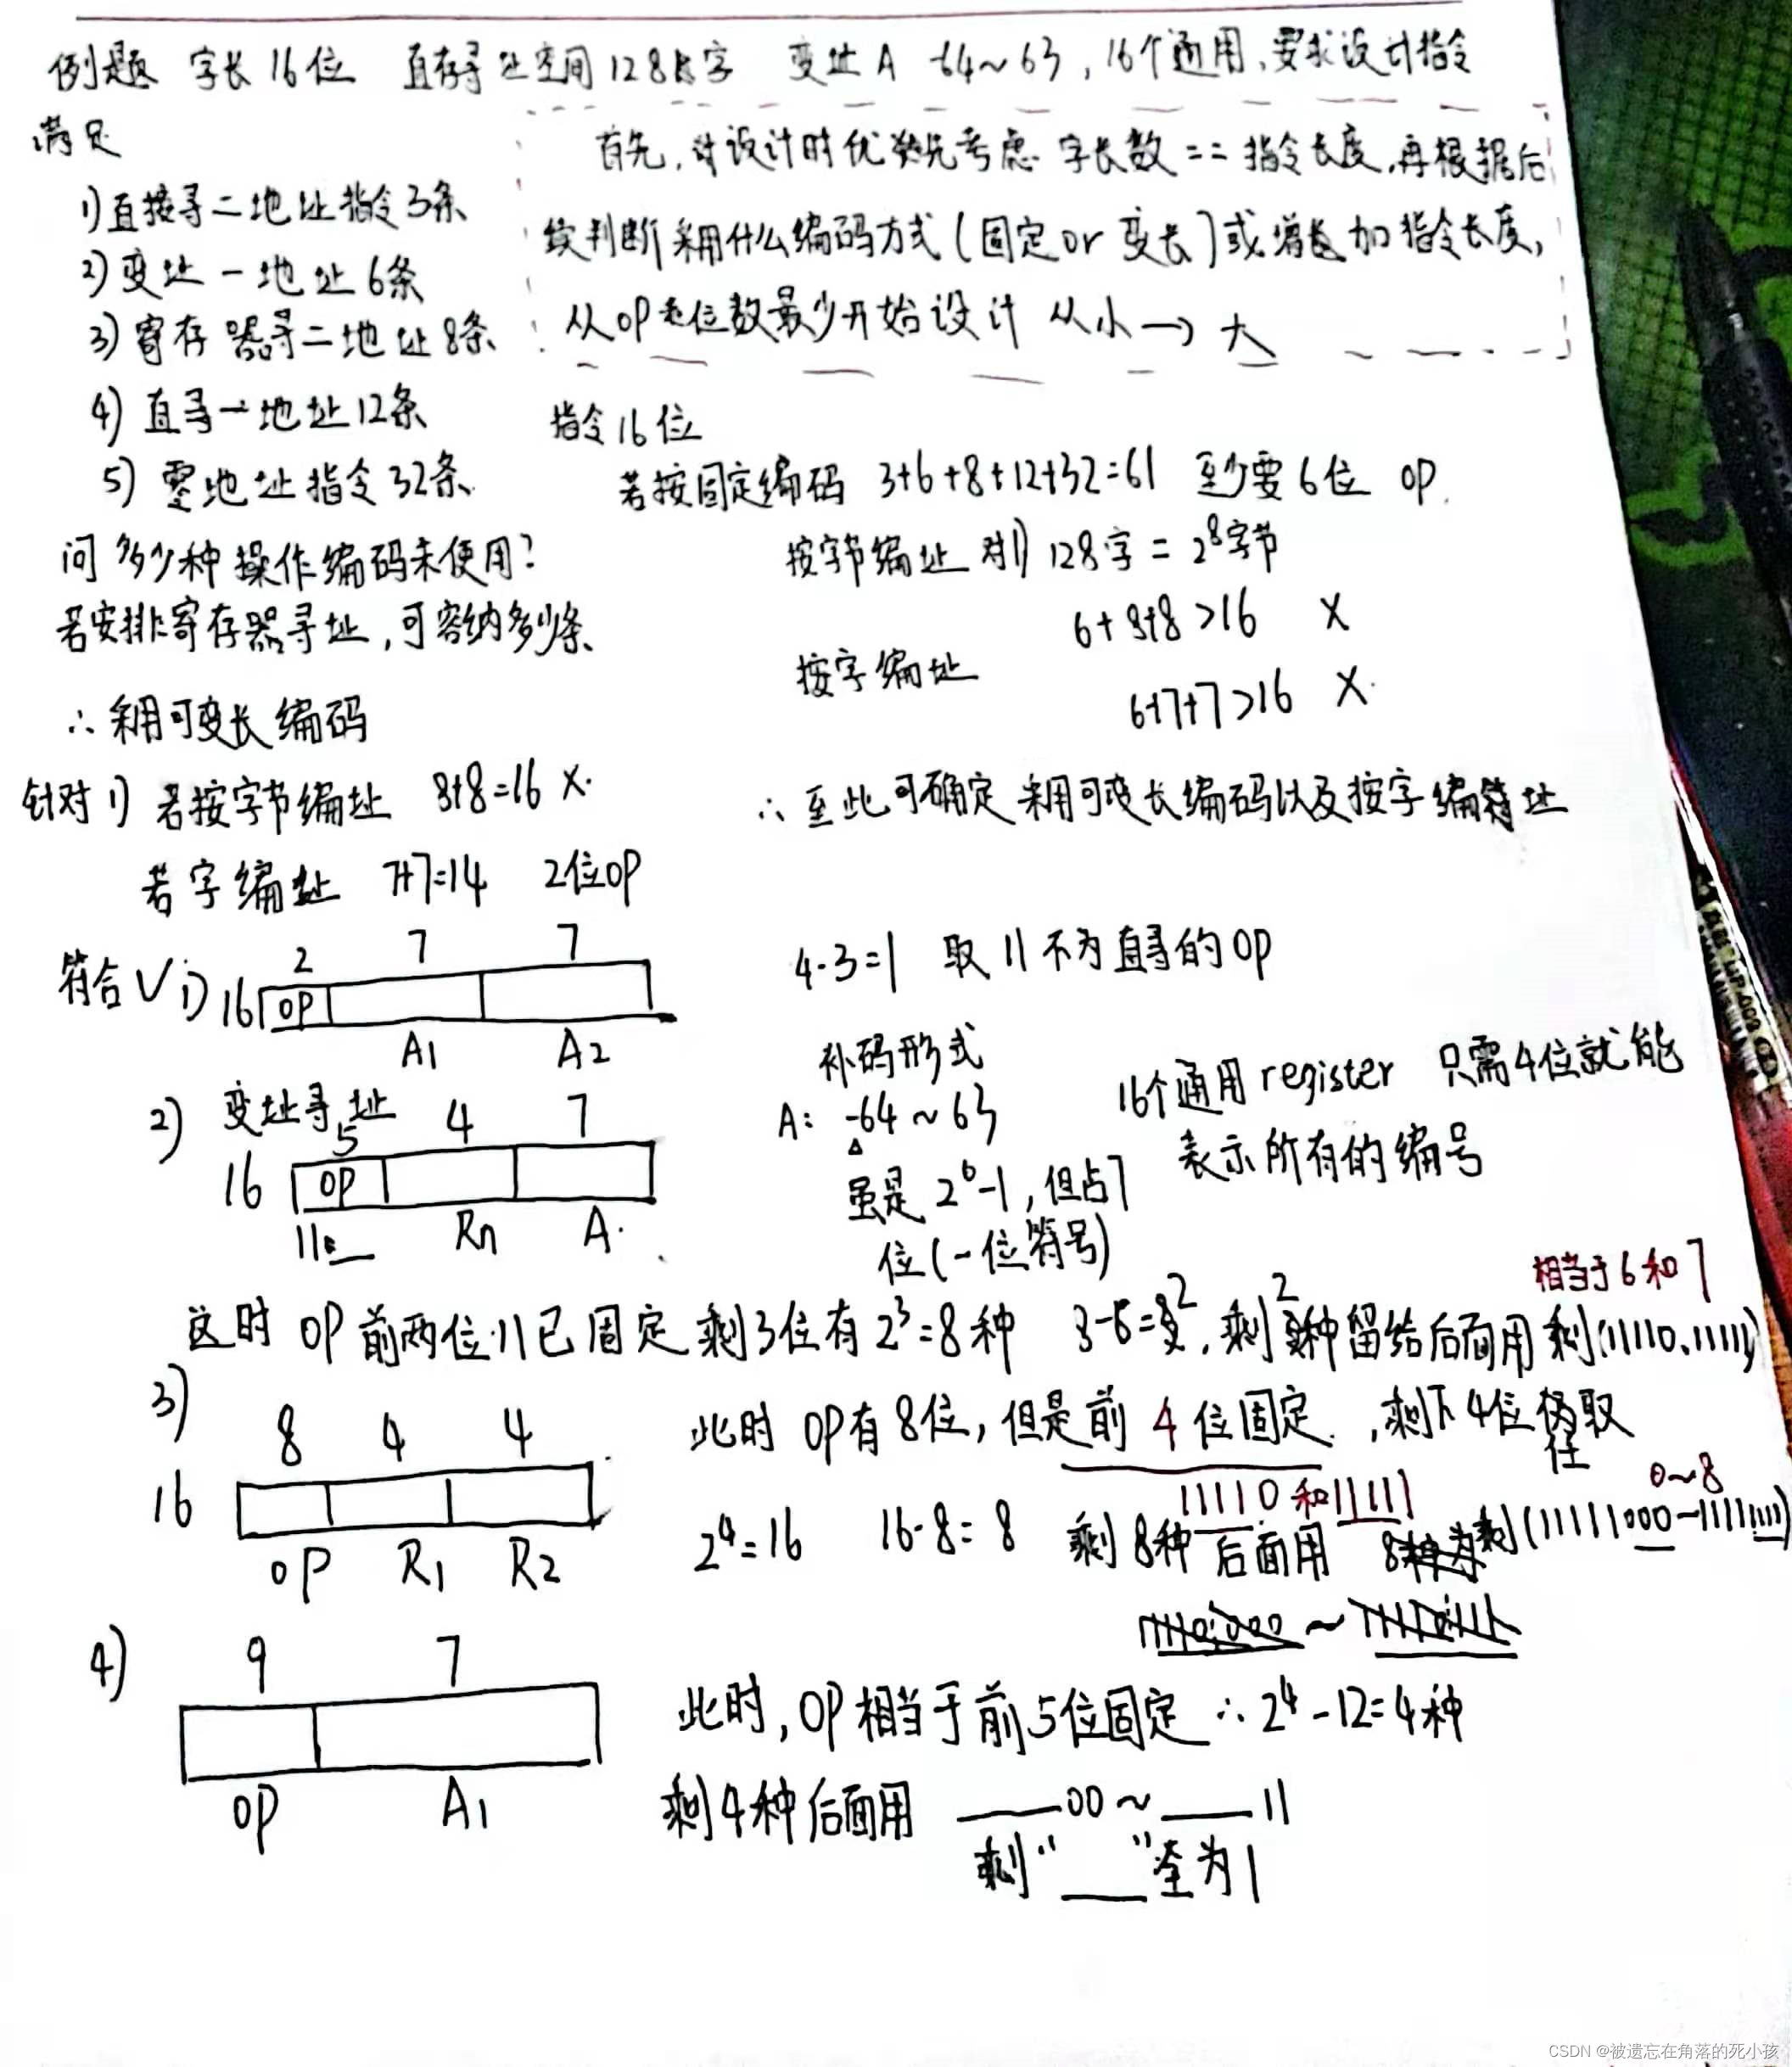 例题 字长16位 直存寻址空间128字 变址A -64~63,16个通用,要求设计指令
满足
首先,设计时优先考虑 字长数==指令长度,再根据后
续判断采用什么编码方式(固定or变长)或增加指令长度,
从OP位数最少开始设计 从小→大
1)直接寻二地址指令3条
2)变址一地址6条
3)寄存器寻二地址8条
4)直寻一地址12条
5)零地址指令32条
问多少种操作编码未使用?
若安排寄存器寻址,可容纳多少条
指令16位
若按固定编码 3+6+8+12+32=61 至少要6位 OP.
按字节编址 对1) 128字=2^8字节
6+8+8>16 X
按字编址
6+7+7>16 X.
∴采用可变长编码
针对1)若按字节编址 8+8=16 X.
∴至此可确定采用可变长编码以及按字编址
若字编址 7+7=14 2位OP
符合√
1) 16 2 7 7
OP
A1 A2
4-3=1 取11不为直寻的OP
2) 变址寻址
16 5 4 7
OP
11 Rn A.
补码形式
A: -64~63
虽是2^6-1,但占7
位(一位符号)
16个通用register 只需4位就能
表示所有的编号
相当于6和7
这时OP前两位11已固定剩3位有2^3=8种 8-6=2,剩2种留给后面用 剩(11110.11111)
3)
16 8 4 4
OP R1 R2
此时OP有8位,但是前4位固定,剩下4位任取
11110和11111
0~8
2^4=16 16-8=8 剩8种后面用 剩(11111000-11111111)
4)
9 7
OP A1
此时,OP相当于前5位固定∴2^4-12=4种
剩4种后面用 ___00~___11
剩"___"全为1
CSDN @被遗忘在角落的死小孩